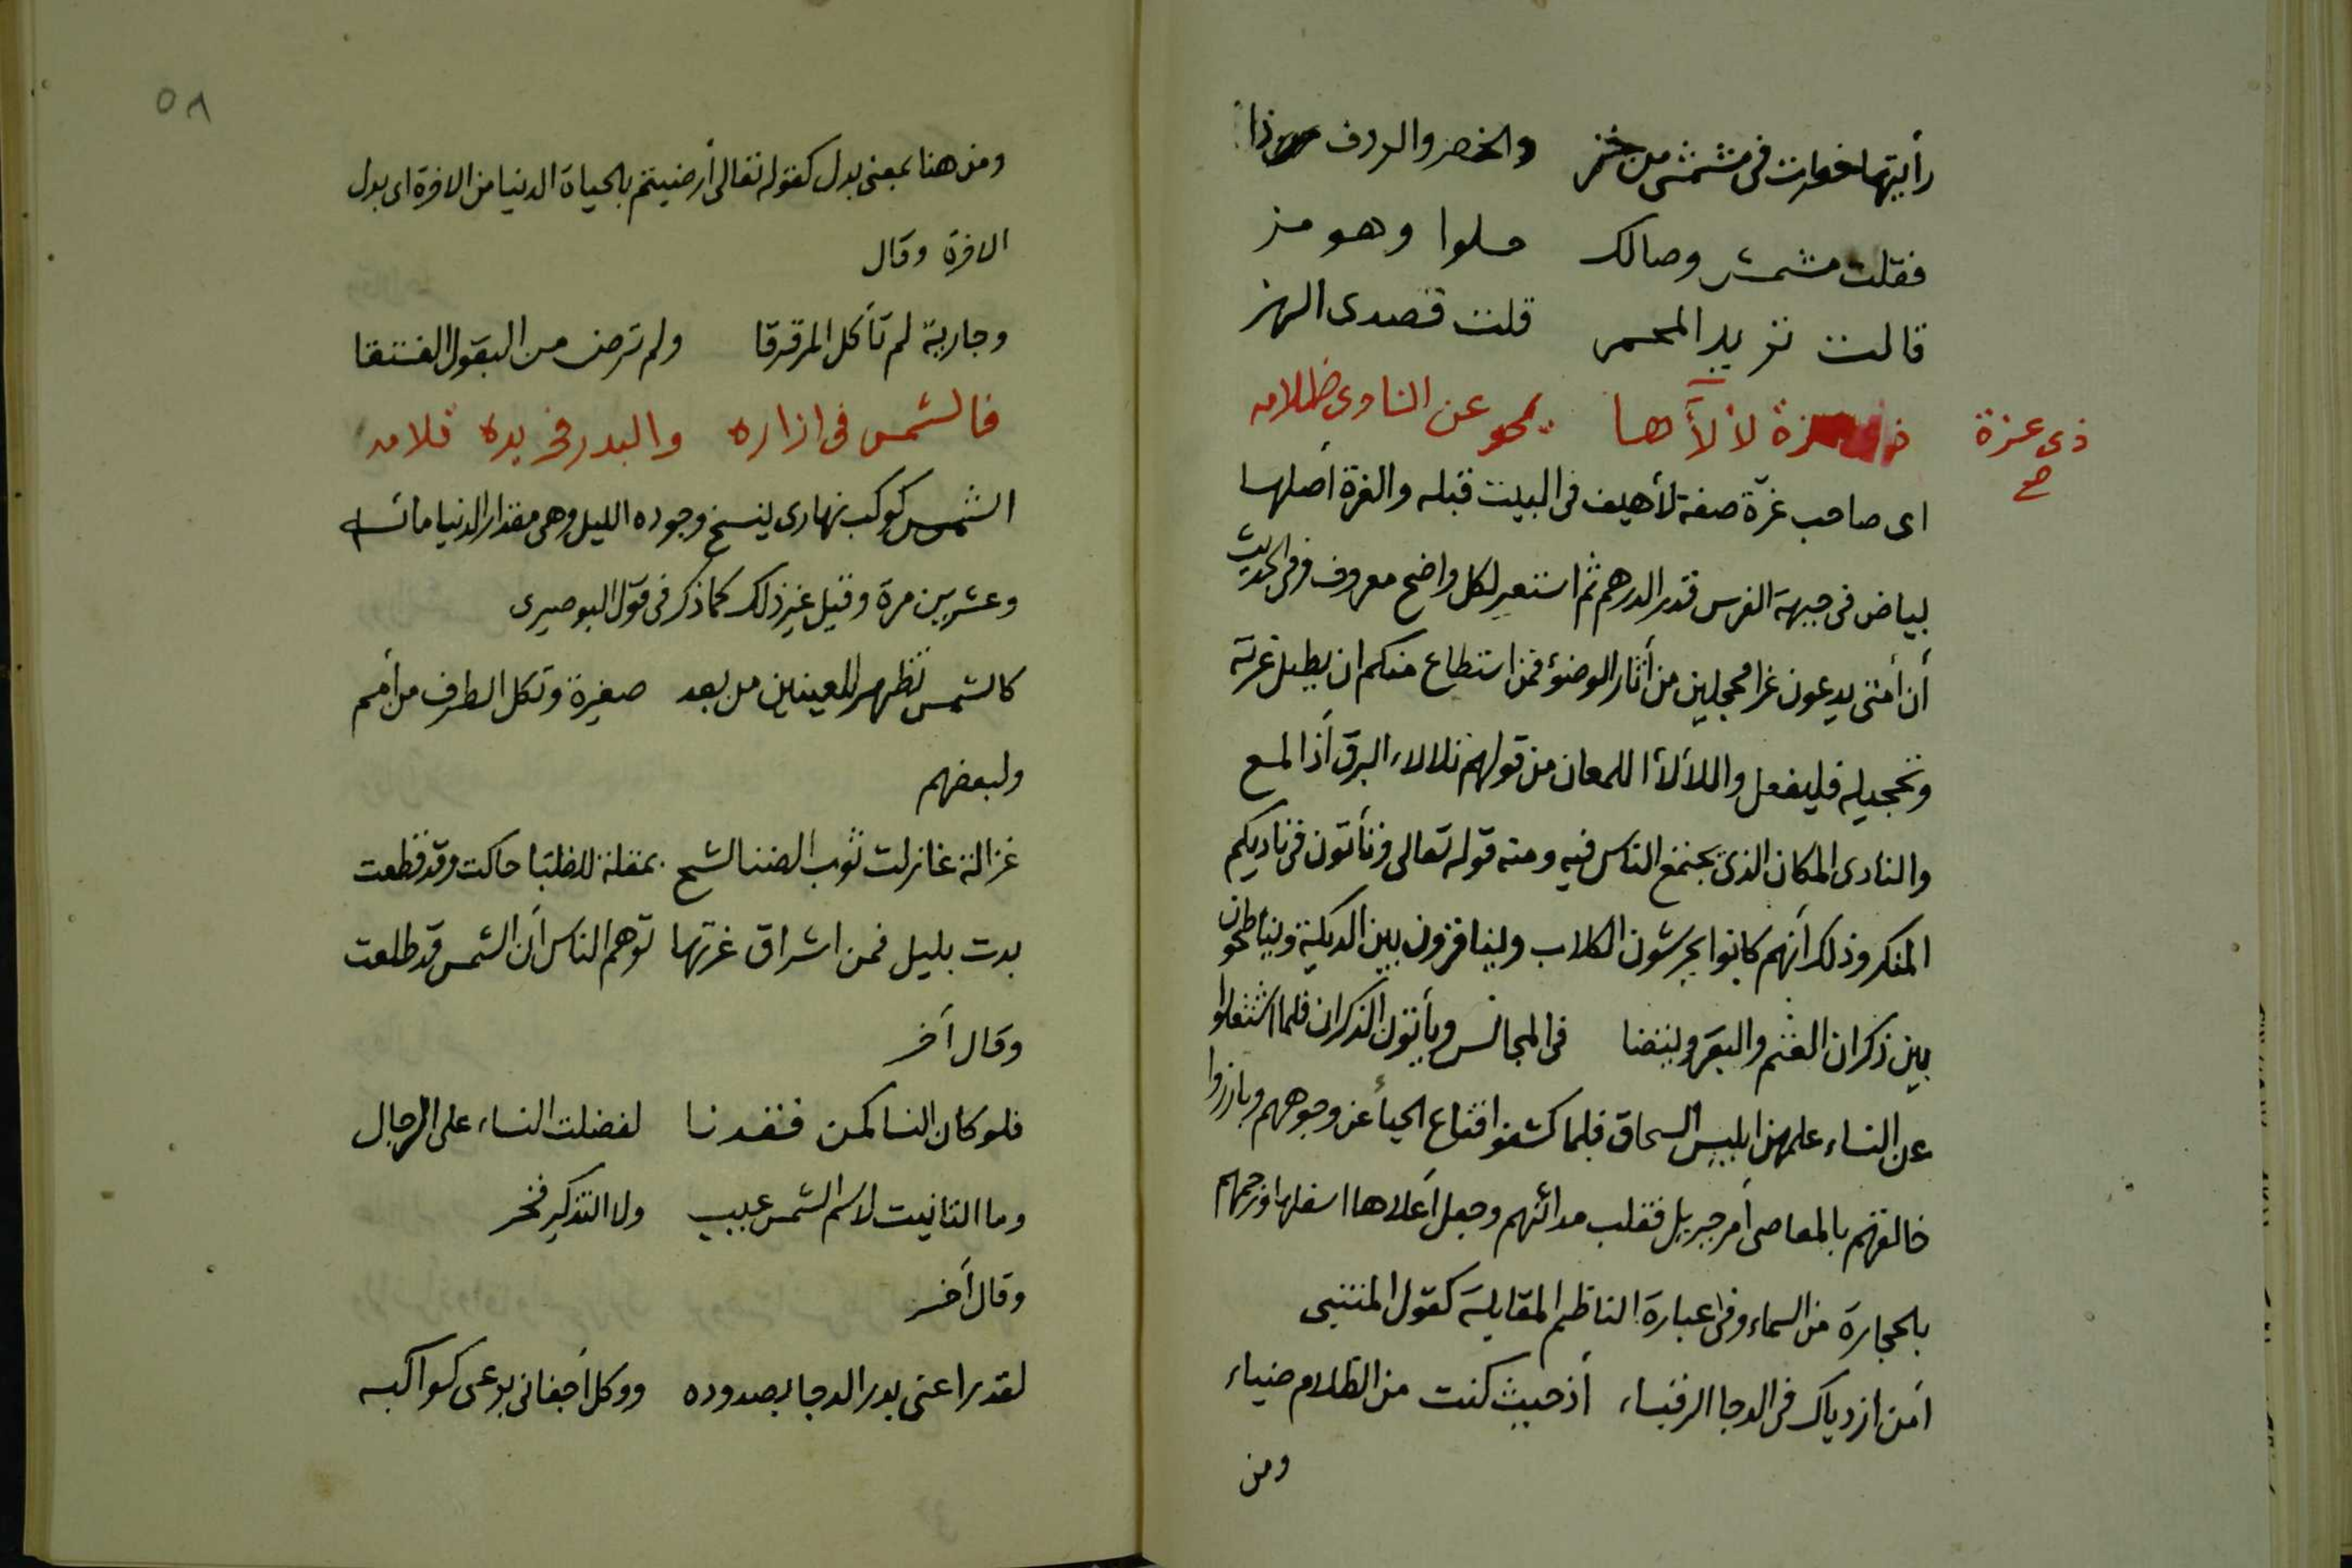 رأيتها خطرت فى مشمشى من خز والخصر والردف هذا
فقلت مشمش وصالك حلوا وهو مز
قالت تريد المحمر قلت قصدى الهز
ذى غرة لألآها يمحو عن النادى ظلامه
ذى غرة
صح
اى صاحب غرّة صفة لأهيف فى البيت قبله والغرة أصلها
بياض فى جبهة الفرس قدر الدرهم ثم استعير لكل واضح معروف وفى الحديث
أن أمتى يدعون غرا محجلين من أثار الوضوء فمن استطاع منكم ان يطيل غرته
وتحجيله فليفعل واللألأ اللمعان من قولهم تلالاء البرق أذا لمع
والنادى المكان الذى يجتمع الناس فيه ومنه قوله تعالى وتأتون فى ناديكم
المنكر وذلك أنهم كانوا يحرشون الكلاب وينافزون بين الديكة ويناطحون
بين ذكران الغنم والبقر ويتضا فى المجالس ويأتون الذكران فلما اشتغلوا
عن النساء علمهن ابليس السحاق فلما كشفوا قناع الحيأ عن وجوههم وبارزوا
خالقهم بالمعاصى أمر جبريل فقلب مدائنهم وجعل أعلاها اسفلها ورجمهم
بالحجارة من السماء وفى عبارة الناظم المقابلة كقول المتنبى
أمن ازدياك فى الدجا الرقباء أذ حيث كنت من الظلام ضياء
ومن
٥٨
ومن هنا بمعنى بدل كقوله تعالى أرضيتم بالحياة الدنيا من الاخرة اى بدل
الاخرة وقال
وجارية لم تأكل المرققا ولم ترض من البقول الفستقا
فالشمس فى ازاره والبدر فى يده قلامه
الشمس كوكب نهارى ينسخ وجوده الليل وهى مقدار الدنيا مائة
وعشرين مرة وقيل غير ذلك كما ذكر فى قول البوصيرى
كالشمس تظهر للعينين من بعد صغيرة وتكل الطرف من أمم
ولبعضهم
غزالة غازلت ثوب الضنا لشج بمقلة للظبا حاكت وقد قطعت
بدت بليل فمن اشراق غرتها توهم الناس أن الشمس قد طلعت
وقال أخر
فلو كان النسا كمن فقدنا لفضلت النساء على الرجال
وما التانيت لاسم الشمس عيب ولا التذكير فخر
وقال أخر
لقد راعنى بدر الدجا بصدوده ووكل أجفانى برعى كواكبه